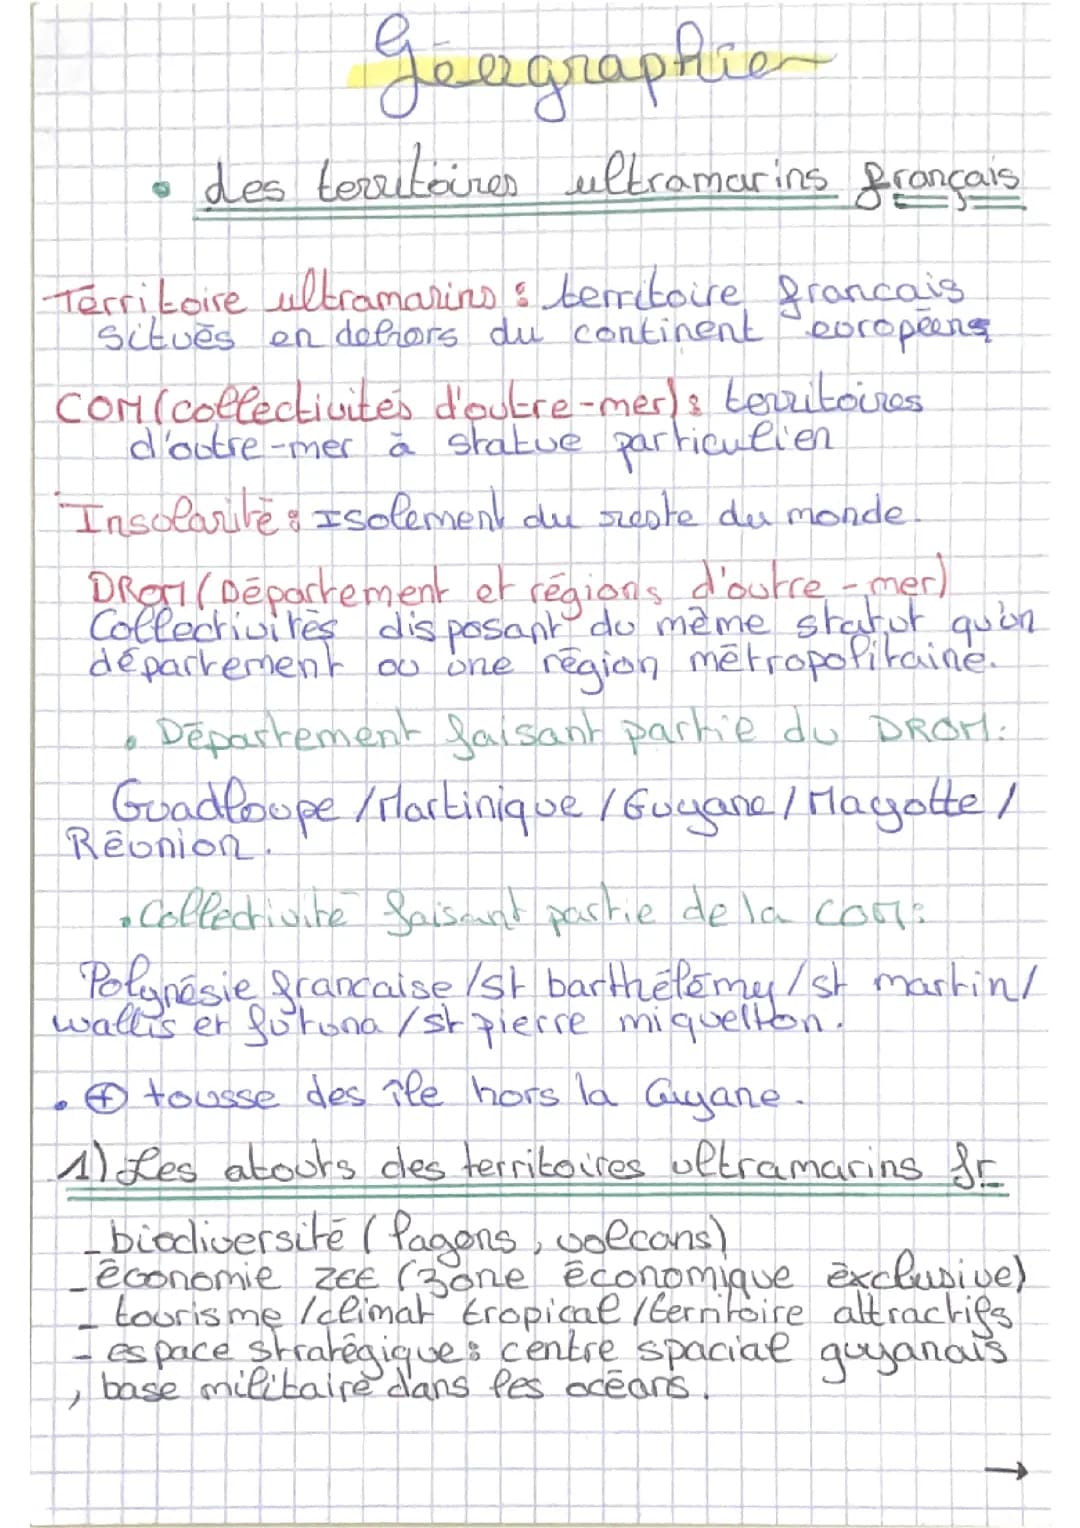 Géographie
• des territoires ultramarins français
Térritoire ultramarins : territoire français
situés en dehors du continent européens
COM (collectivités d'outre-mer) : territoires
d'outre-mer à statue particulier
Insolarité : Isolement du reste du monde.
DROM (Département et régions d'outre-mer)
Collectivités disposant du même statut qu'un
département ou une région métropolitaine.
• Département faisant partie du DROM :
Guadloupe / Martinique / Guyane / Mayotte /
Réunion.
• Collectivité faisant partie de la COM :
Polynésie française / st barthélémy / st martin /
wallis et futuna / st pierre miquelton.
• ⊕ tousse des île hors la Guyane.
1) Les atouts des territoires ultramarins fr
- biodiversité ( lagons, volcans)
- économie ZEE (zone économique exclusive)
- tourisme / climat tropical / territoire attractifs
- espace stratégique : centre spacial guyanais
, base militaire dans les océans.
→